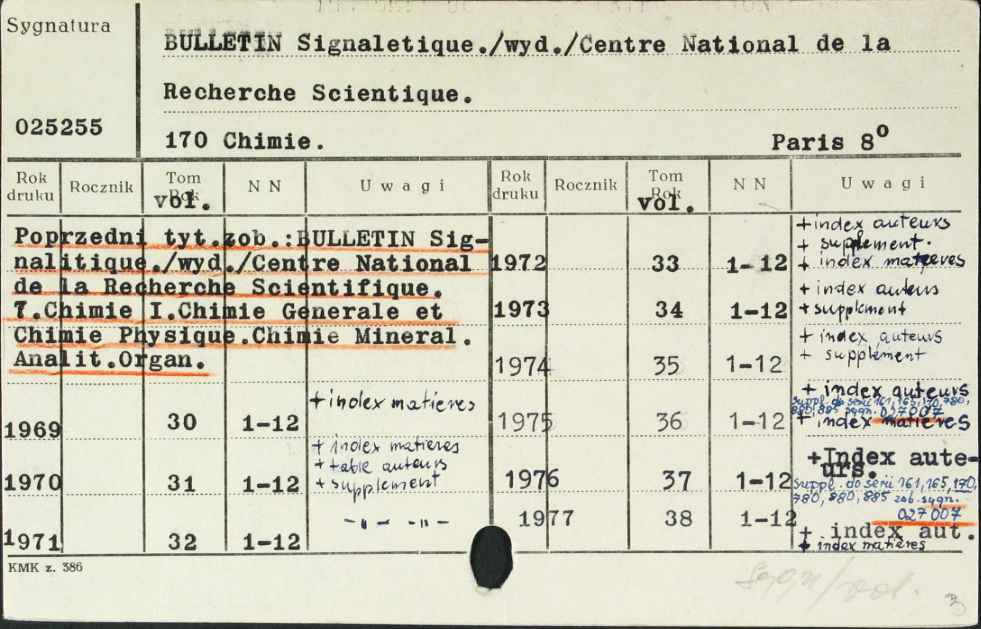 Sygnatura
BULLETIN Signaletique./wyd./Centre National de la
Recherche Scientique.
025255
170 Chimie. Paris 8⁰
Rok druku Rocznik Tom Rok vol. N N Uwagi Rok druku Rocznik Tom Rok vol. N N Uwagi
Poprzedni tyt.zob.:BULLETIN Sig-
nalitique./wyd./Centre National
de la Recherche Scientifique.
7.Chimie I.Chimie Generale et
Chimie Physique.Chimie Mineral.
Analit.Organ.
1969 30 1-12 + index matieres
1970 31 1-12 + index matieres
+ table auteurs
+ supplement
1971 32 1-12 -"- -"-
1972 33 1-12 + index auteurs
+ supplement.
+ index matieres
1973 34 1-12 + index auteurs
+ supplement
1974 35 1-12 + index auteurs
+ supplément
1975 36 1-12 + index auteurs
suppl. do serii 161, 165, 170, 780,
880, 885 sygn. 027007
+ index matieres
1976 37 1-12 +Index aute-
urs.
suppl. do serii 161, 165, 170,
780, 880, 885 zob. sygn.
027 007
1977 38 1-12 + index aut.
+ index matieres
KMK z. 386